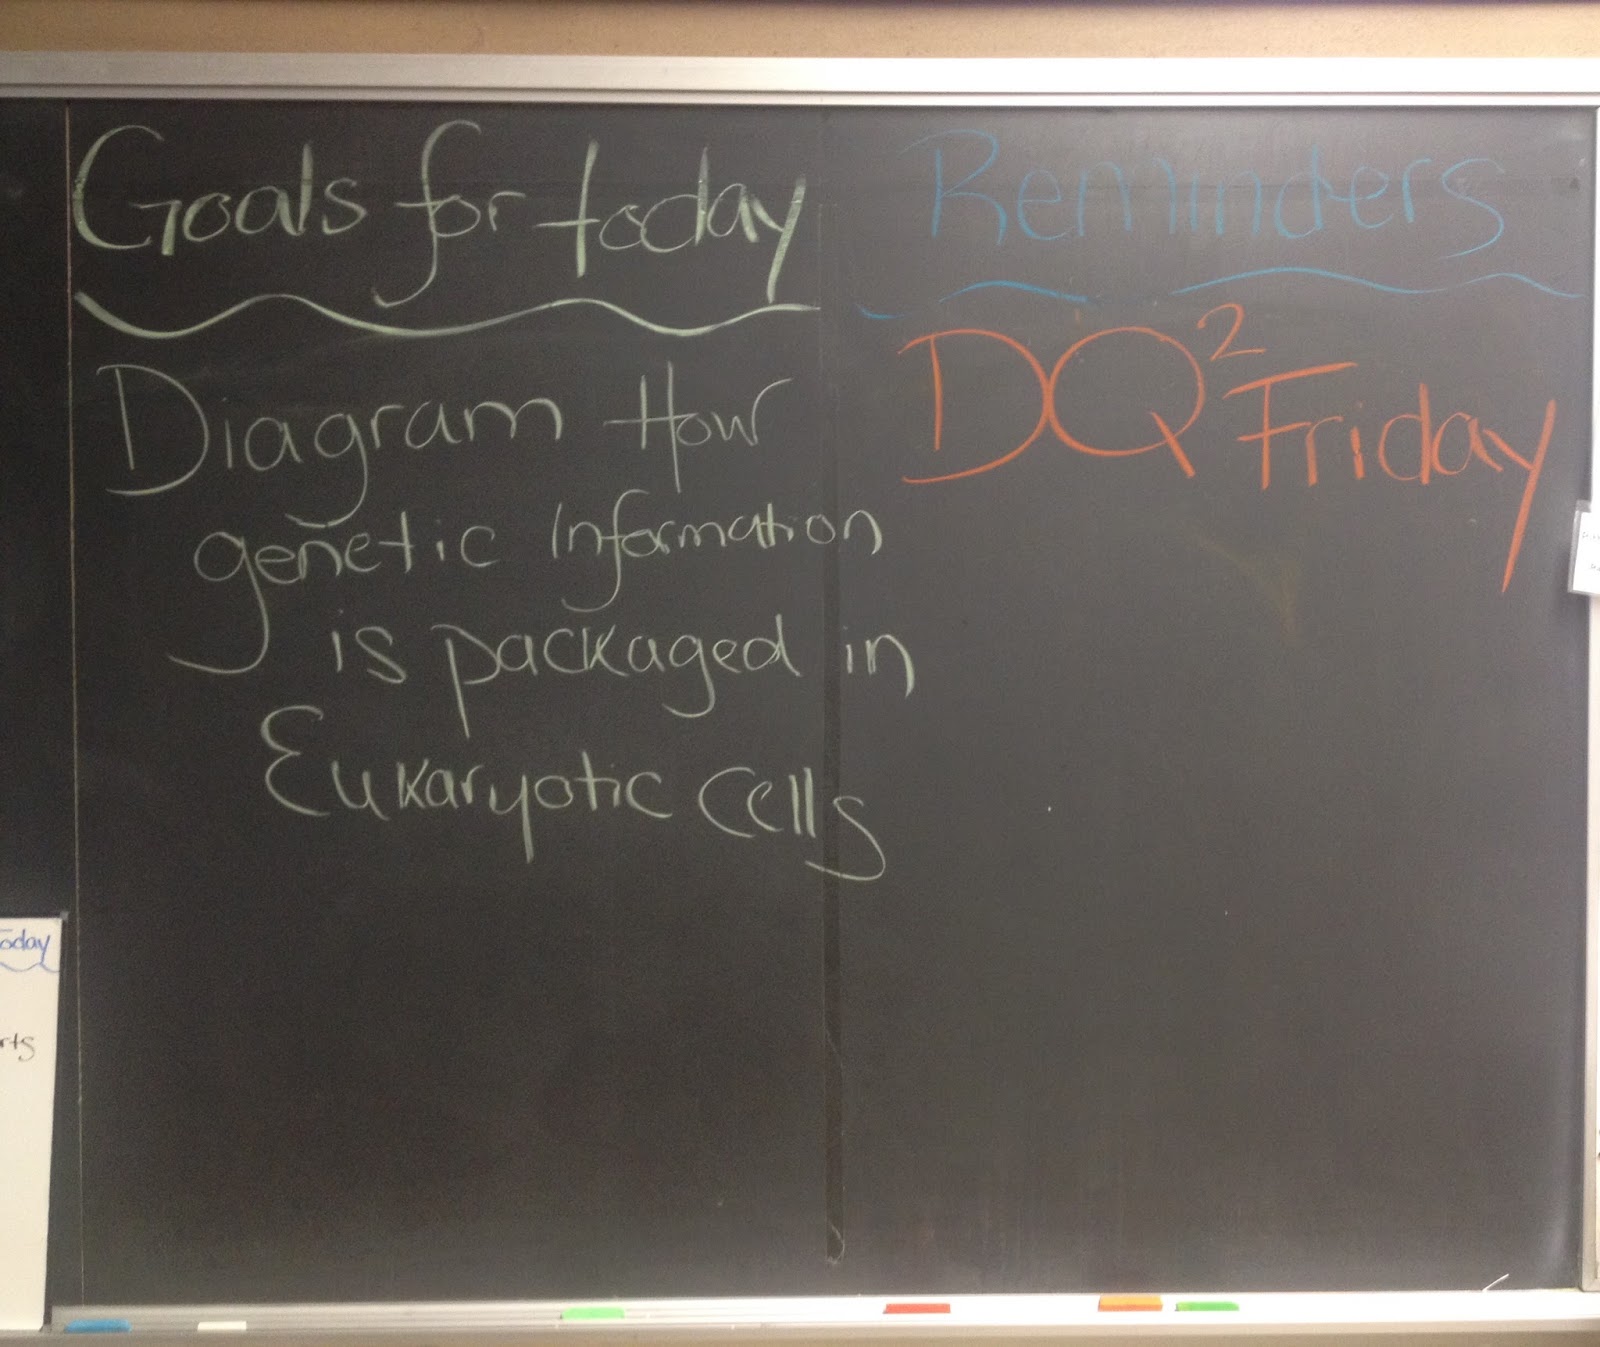 Goals for today
Diagram How
genetic Information
is packaged in
Eukaryotic cells
Reminders
DQ² Friday
oday
rts